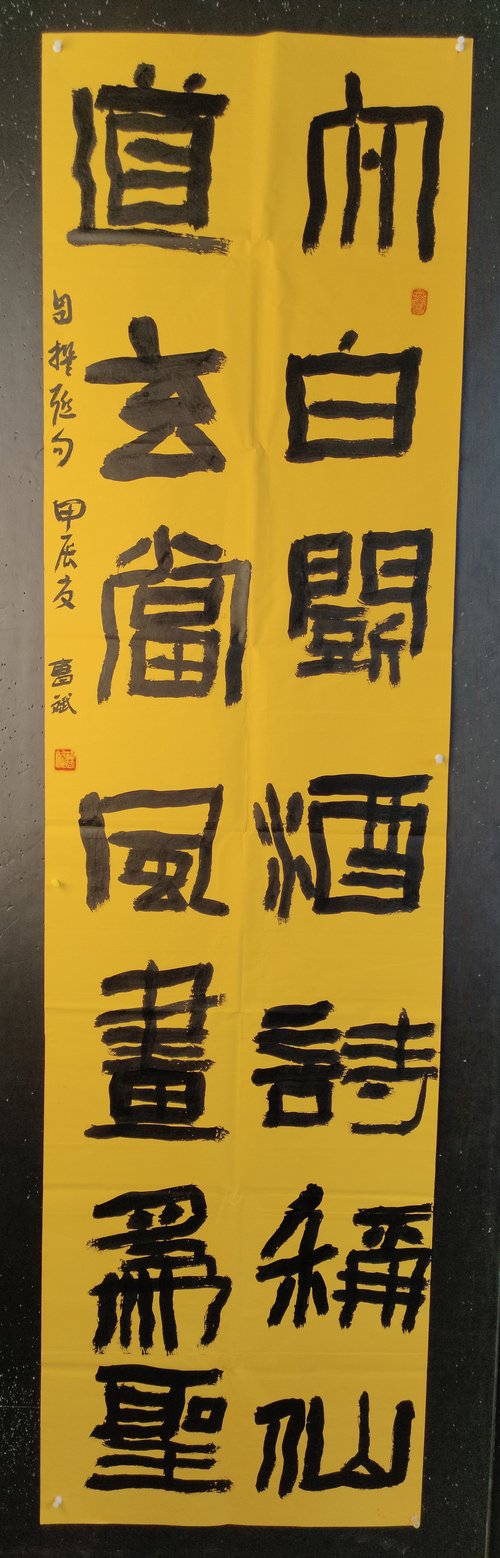 太白鬭酒詩稱仙
道玄當風畫爲聖
自撰联句 甲辰夏 葛斌